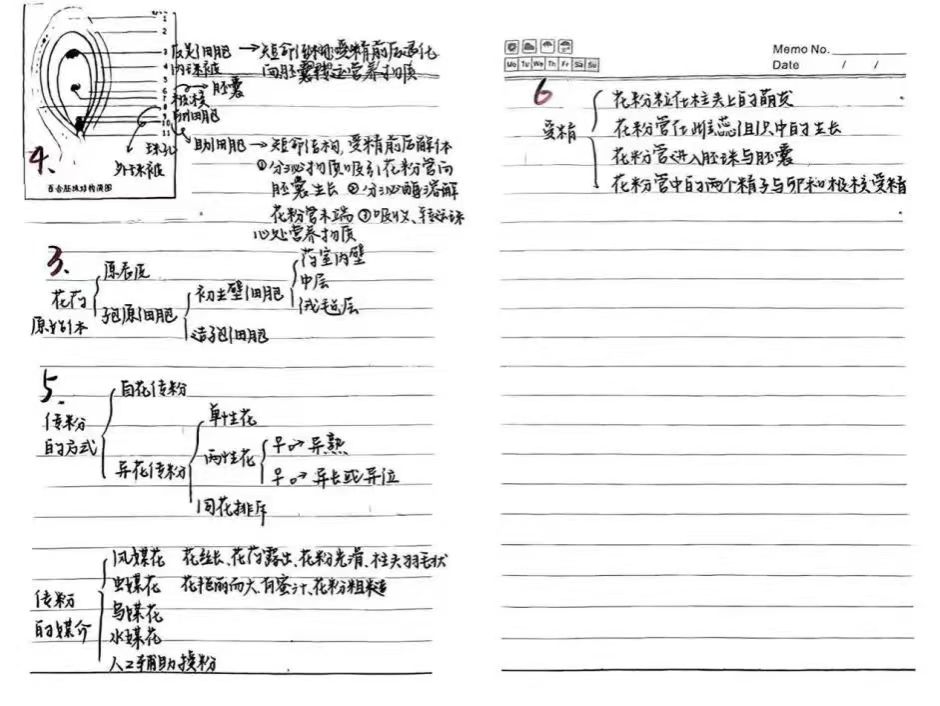 1
2
3
4
5
6
7
8
9
10
11
反足细胞→短命结构受精前后退化
内珠被 向胚囊转运营养物质
胚囊
极核
卵细胞
助细胞→短命结构,受精前后解体
珠孔
外珠被
①分泌物质吸引花粉管向
胚囊生长 ②分泌酶溶解
花粉管末端 ③吸收、转运珠
心处营养物质
4.
百合胚珠结构简图
3.
花药
原始体
原表皮
孢原细胞
初生壁细胞
药室内壁
中层
绒毡层
造孢细胞
5.
传粉
的方式
自花传粉
异花传粉
单性花
两性花
异熟
异长或异位
同花排斥
传粉
的媒介
风媒花 花丝长、花药露出、花粉光滑、柱头羽毛状
虫媒花 花艳丽而大、有蜜汁、花粉粗糙
鸟媒花
水媒花
人工辅助授粉
Memo No.
Mo Tu We Th Fr Sa Su
Date / /
6
受精
花粉粒在柱头上的萌发
花粉管在雌蕊组织中的生长
花粉管进入胚珠与胚囊
花粉管中的两个精子与卵和极核受精